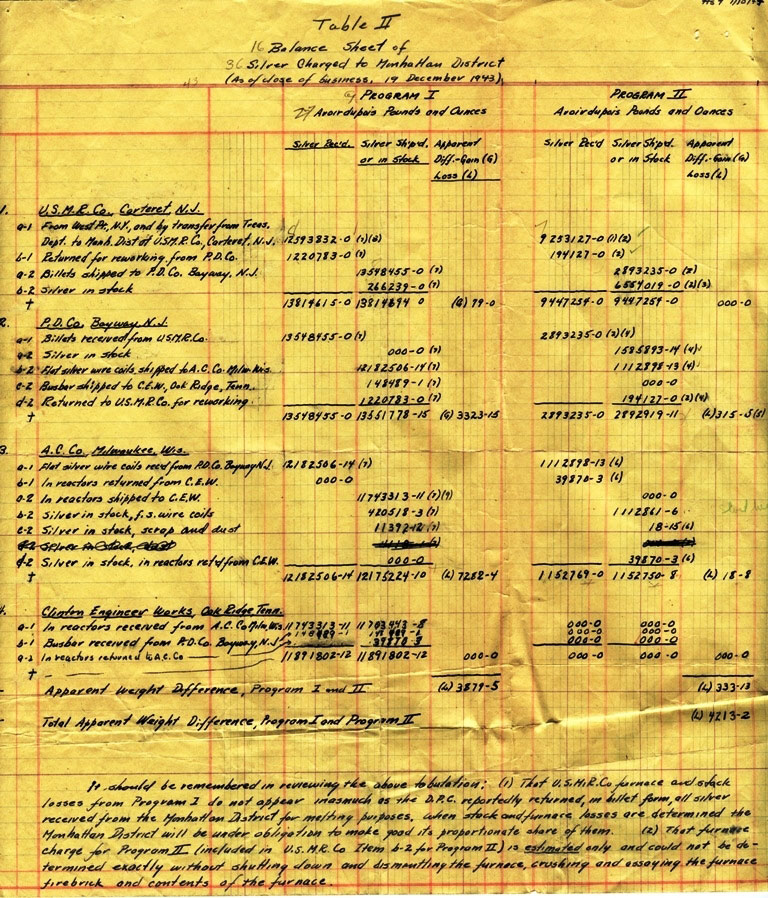 Table II
16 Balance Sheet of
36 Silver Charged to Manhattan District
(As of close of business, 19 December 1943)
PROGRAM I PROGRAM II
27 Avoirdupois Pounds and Ounces Avoirdupois Pounds and Ounces
Silver Rec'd. Silver Ship'd. Apparent Silver Rec'd Silver Ship'd. Apparent
or in Stock Diff.-Gain (G) or in Stock Diff.-Gain (G)
Loss (L) Loss (L)
1. U.S.M.R.Co., Carteret, N.J.
a-1 From West Pt., N.Y., and by transfer from Treas.
Dept. to Manh. Dist at U.S.M.R.Co., Carteret, N.J. 12593832-0 (7)(8) 9253127-0 (1)(2)
b-1 Returned for reworking from P.D.Co. 1220783-0 (7) 194127-0 (2)
a-2 Billets shipped to P.D.Co. Bayway, N.J. 13548455-0 (7) 2893235-0 (2)
b-2 Silver in stock 266239-0 (7) 6554019-0 (2)(3)
† 13814615-0 13814694 0 (G) 79-0 9447254-0 9447254-0 000-0
2. P.D.Co., Bayway N.J.
a-1 Billets received from U.S.M.R.Co. 13548455-0 (7) 2893235-0 (2)(4)
a-2 Silver in stock 000-0 (7) 1585893-14 (4)
b-2 Flat silver wire coils, shipped to A.C.Co. Milw. Wis. 12182506-14 (7) 1112898-13 (4)
c-2 Busbar shipped to C.E.W., Oak Ridge, Tenn. 148489-1 (7) 000-0
d-2 Returned to U.S.M.R.Co. for reworking 1220783-0 (7) 194127-0 (2)(4)
† 13548455-0 13551778-15 (G) 3323-15 2893235-0 2892919-11 (L) 315-5 (5)
3. A.C.Co., Milwaukee, Wis.
a-1 Flat silver wire coils rec'd from P.D.Co. Bayway N.J. 12182506-14 (7) 1112898-13 (6)
b-1 In reactors returned from C.E.W. 000-0 39870-3 (6)
a-2 In reactors shipped to C.E.W. 11743313-11 (7)(9) 000-0
b-2 Silver in stock, f.s. wire coils 420518-3 (7) 1112861-6
c-2 Silver in stock, scrap and dust 11392-12 (7) 18-15 (6)
d-2 Silver in stock, in reactors ret'd from C.E.W. 000-0 39870-3 (6)
† 12182506-14 12175224-10 (L) 7282-4 1152769-0 1152750-8 (L) 18-8
4. Clinton Engineer Works, Oak Ridge Tenn.
a-1 In reactors received from A.C.Co Milw, Wis. 11743313-11 11703443-8 000-0 000-0
b-1 Busbar received from P.D.Co. Bayway, N.J. 148489-1 148489-1 000-0 000-0
a-2 In reactors returned to A.C.Co 39870 3 000-0 000-0
† 11891802-12 11891802-12 000-0 000-0 000-0 000-0
Apparent Weight Difference, Program I and II (L) 3879-5 (L) 333-13
Total Apparent Weight Difference, Program I and Program II (L) 4213-2
It should be remembered in reviewing the above tabulation; (1) That U.S.M.R.Co furnace and stack
losses from Program I do not appear inasmuch as the D.P.C. reportedly returned, in billet form, all silver
received from the Manhattan District for melting purposes, when stack and furnace losses are determined the
Manhattan District will be under obligation to make good its proportionate share of them. (2) That furnace
charge for Program II (included in U.S.M.R.Co Item b-2 for Program II) is estimated only and could not be de-
termined exactly without shutting down and dismantling the furnace, crushing and assaying the furnace
firebrick and contents of the furnace.